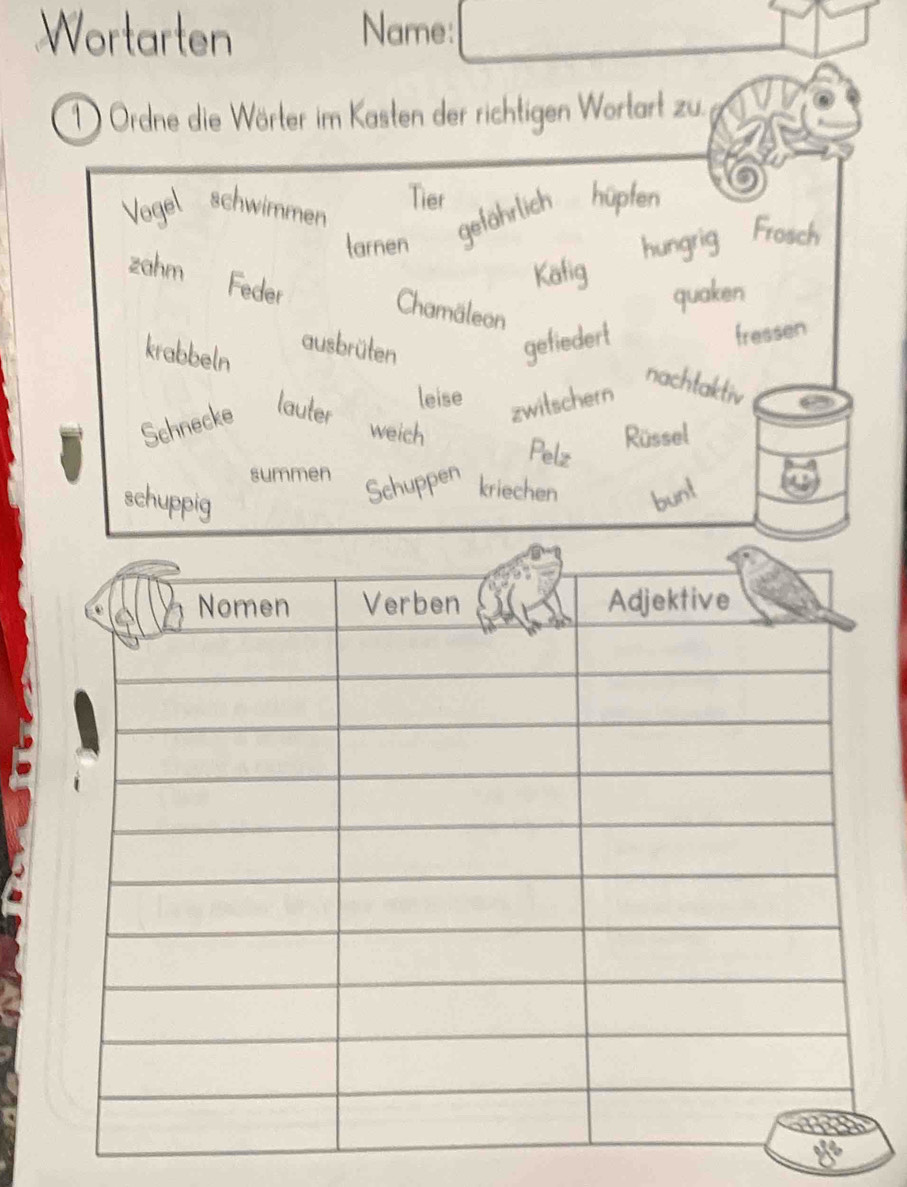 Wortarten Name:
1 Ordne die Wörter im Kasten der richtigen Wortart zu.
Vogel schwimmen Tier gefährlich hüpfen
tarnen hungrig Frosch
zahm Feder Käfig
Chamäleon quaken
krabbeln ausbrüten gefiedert fressen
leise zwitschern nachtaktiv
Schnecke lauter weich Pelz Rüssel
summen Schuppen kriechen
schuppig bunt
Nomen Verben Adjektive